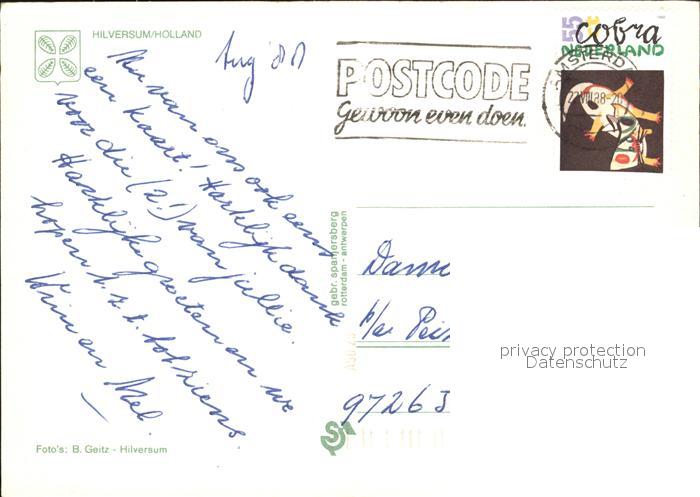 HILVERSUM/HOLLAND
Aug '88
Nu van ons ook eens
een kaart! Hartelijk dank
voor die (2!) van jullie.
Hartelijke groeten en we
hopen t.z.t. tot ziens.
Wim en Mel.
Foto's: B. Geitz - Hilversum
gebr. spanjersberg
rotterdam - antwerpen
POSTCODE
Gewoon even doen.
AMSTERD
22 VIII 88-20
55
cobra
NEDERLAND
p/a
97263
privacy protection
Datenschutz